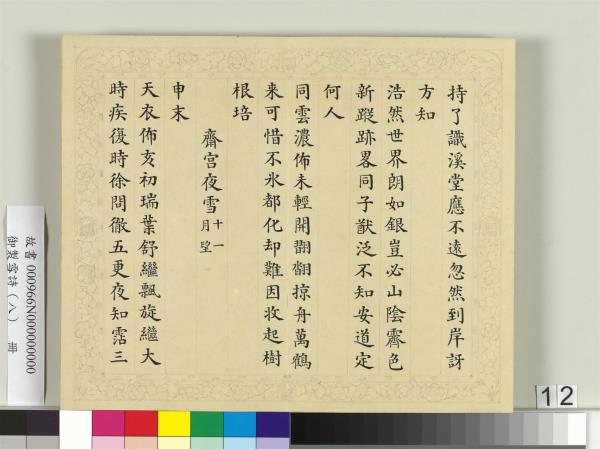 持了識溪堂應不遠忽然到岸訝
方知
浩然世界朗如銀豈必山陰霽色
新蹤跡畧同子猷泛不知安道定
何人
同雲濃佈未輕開翽翽掠舟萬鶴
來可惜不氷都化却難因妝起樹
根培
齋宮夜雪十一月望
申末
天衣佈亥初瑞葉舒繼飄旋繼大
時疾復時徐問徹五更夜知霑三
故書 000966N000000000
御製雪詩(八) 冊
12